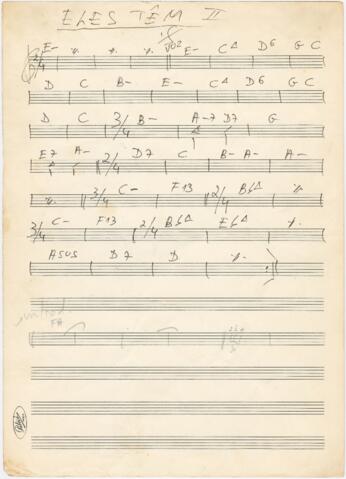 ELES TÊM II
2/4 E- ٪ ٪ ٪ VOZ E- C∆ D6 G C
D C B- E- C∆ D6 G C
D C 3/4 B- A-7 D7 G
E7 A- 2/4 D7 C B- A- A-
٪ 3/4 C- F13 2/4 Bb∆ ٪
3/4 C- F13 2/4 Bb∆ Eb∆ ٪
ASUS D7 D ٪
introd.